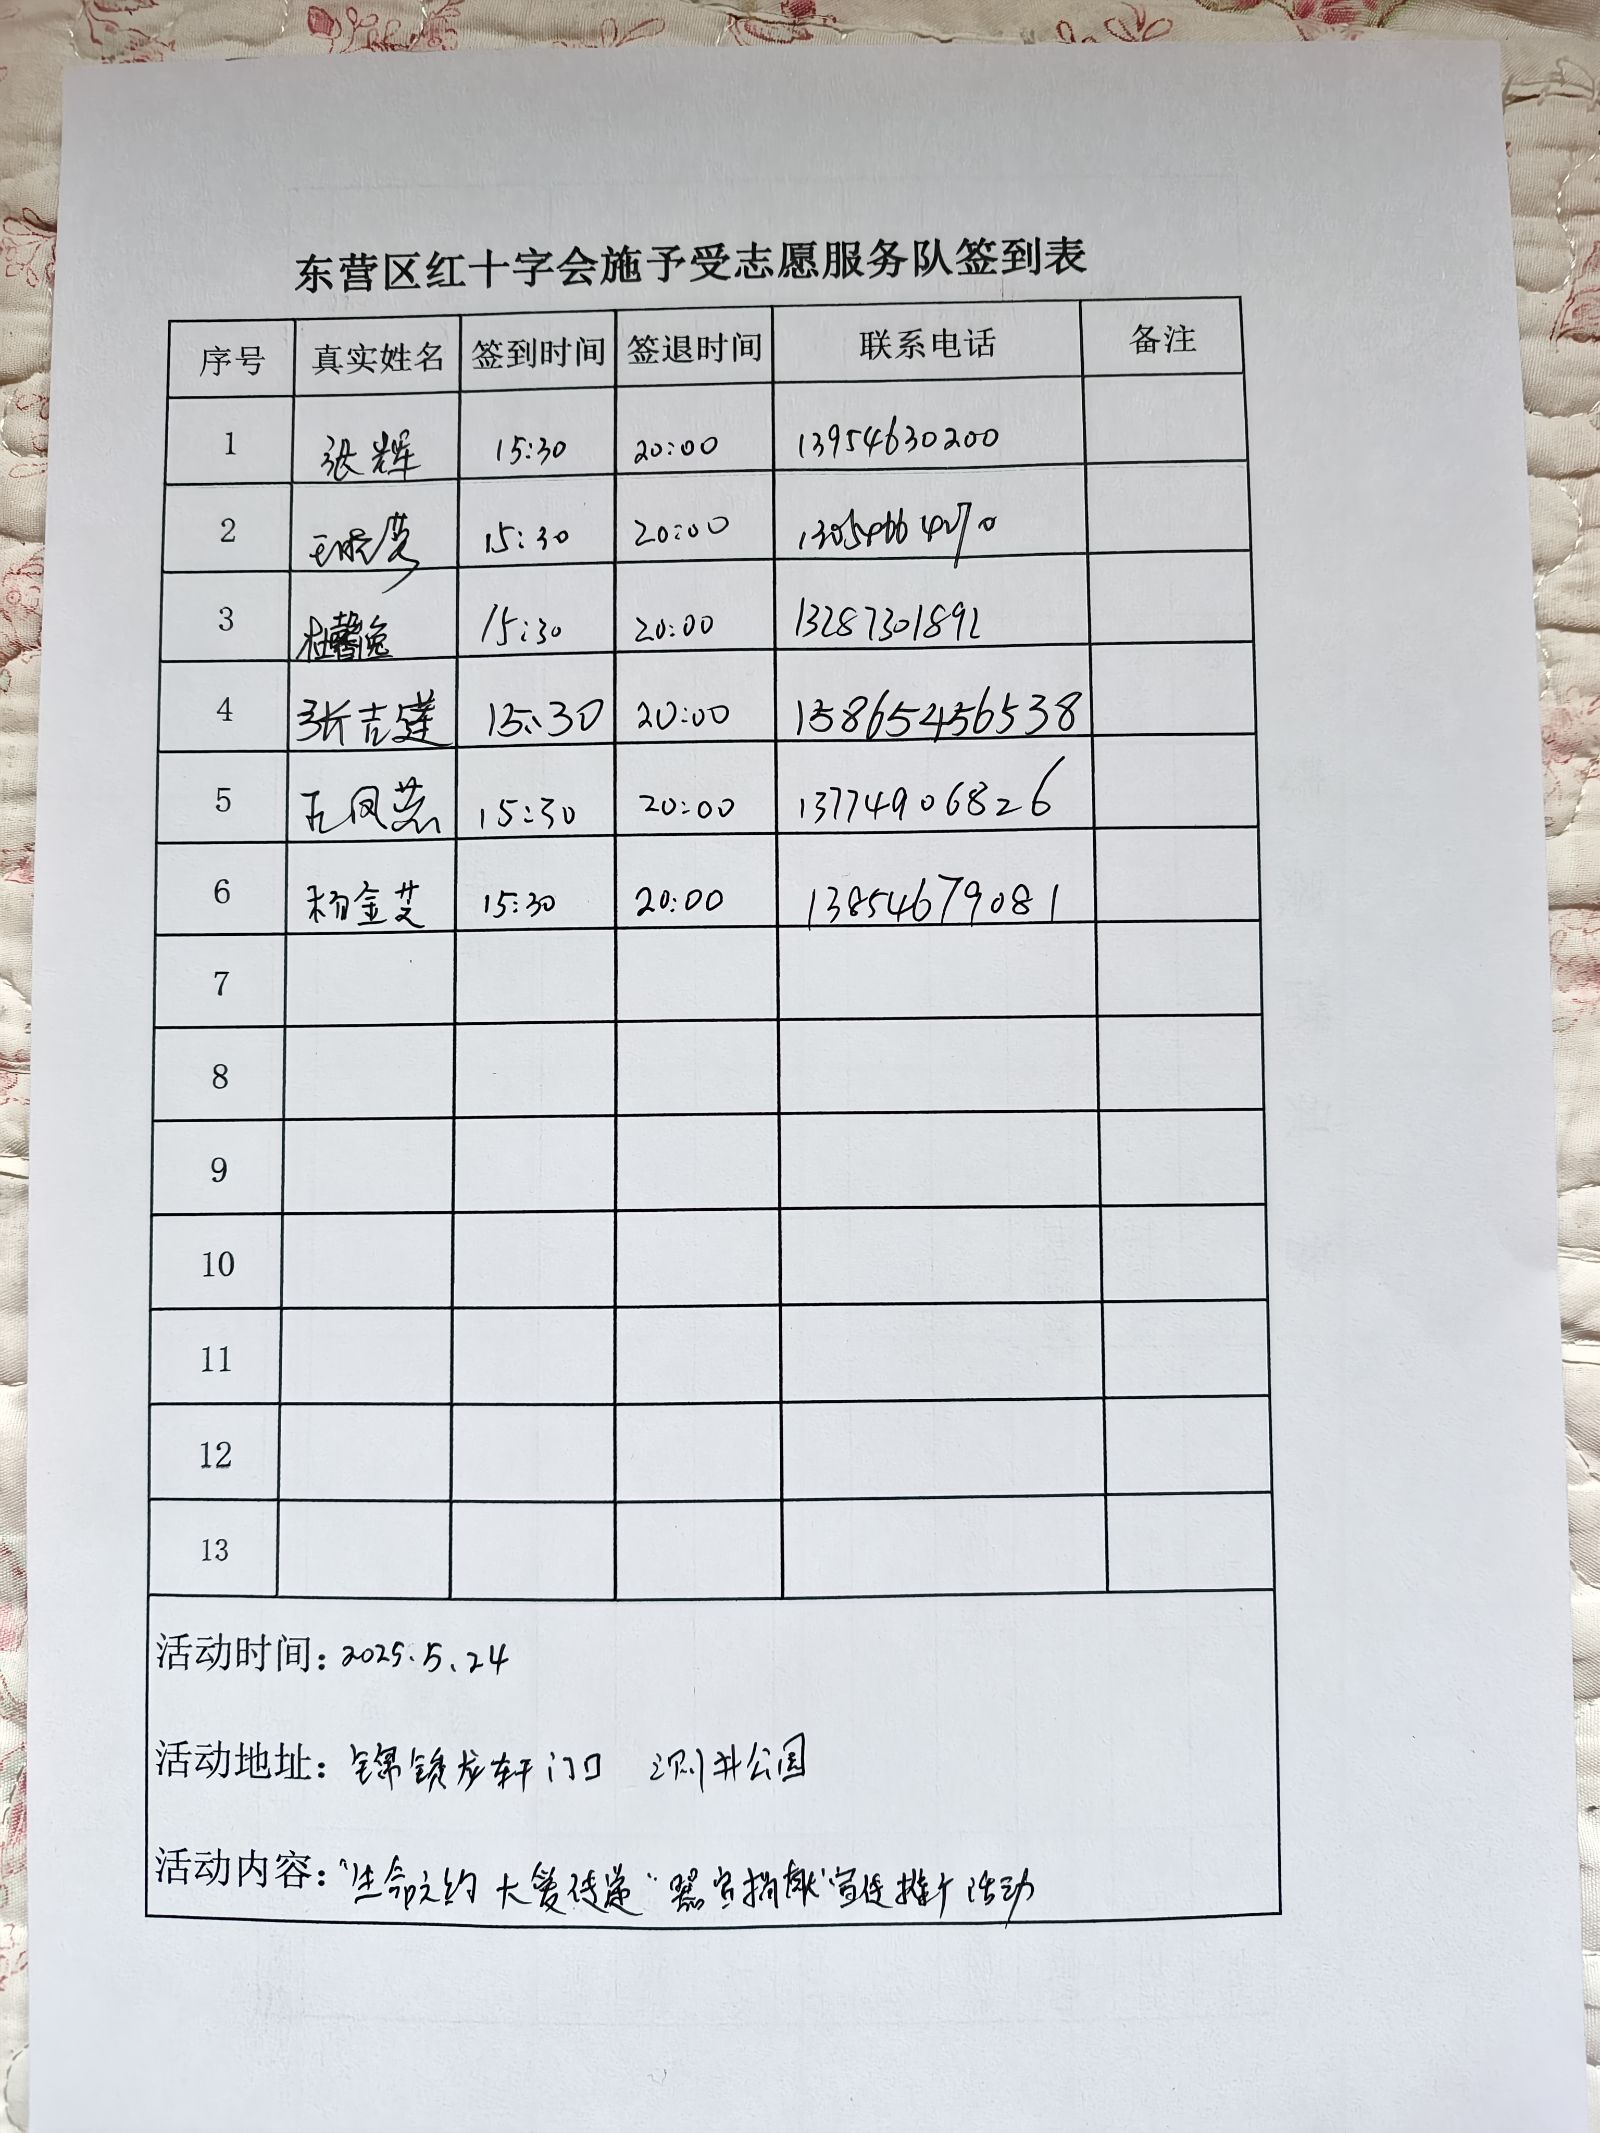 东营区红十字会施予受志愿服务队签到表
序号 真实姓名 签到时间 签退时间 联系电话 备注
1 张辉 15:30 20:00 13954630200
2 15:30 20:00
3 杜馨逸 15:30 20:00 13287301892
4 张吉莲 15:30 20:00 15865456538
5 凤燕 15:30 20:00 13774906826
6 杨金艾 15:30 20:00 13854679081
7
8
9
10
11
12
13
活动时间: 2025.5.24
活动地址: 锦绣龙轩门口 测井公园
活动内容: "生命之约 大爱传递" 器官捐献"宣传推广活动